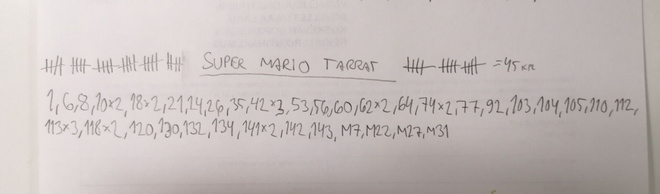 SUPER MARIO TARRAT = 45 km
1, 6, 8, 10×2, 18×2, 21, 24, 26, 35, 42×3, 53, 56, 60, 62×2, 64, 74×2, 77, 92, 103, 104, 105, 110, 112,
113×3, 118×2, 120, 130, 132, 134, 141×2, 142, 143, M7, M22, M27, M31